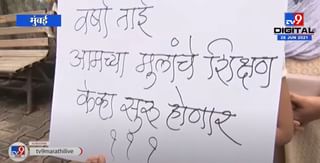 मुंबई
TV9
मराठी
DIGITAL
28 JUN 2021
वर्षा ताई
आमच्या मुलांचे शिक्षण
केव्हा सुरु होणार
? ? ?
tv9marathilive